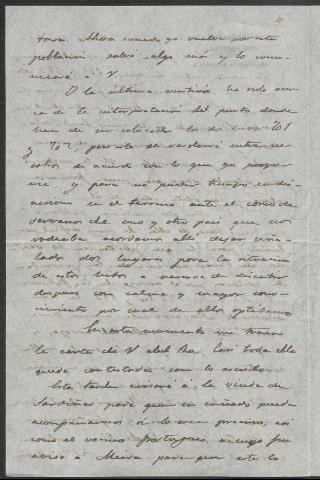 tava. Ahora cuando yo vuelva por esta
poblacion sabré algo más y lo comu-
nicaré á V.
Y la última cuestión ha sido acer-
ca de la interpretacion del punto donde
han de ser colocados los dos 701
y 702; para esta se resolvió entre no-
sotros de acuerdo con lo que yo propu-
se y para no perder tiempo en dis-
cusiones en el terreno ante el corro de
serranos de uno y otro pais que nos
rodeaba acordamos alli dejar seña-
lados dos lugares para la situacion
de estos hitos a reserva de discutir
despues con calma y mayor cono-
cimiento por cual de ellos optabamos
En este momento me traen
la carta de V. del Casi toda ella
queda contestada con lo escrito.
Esta tarde avisaré á la viuda de
Sardiñas para que su cuñado pueda
acompañarnos si lo cree preciso, asi
como el vecino portugues, á cuyo fin
aviso á Meira para que este lo